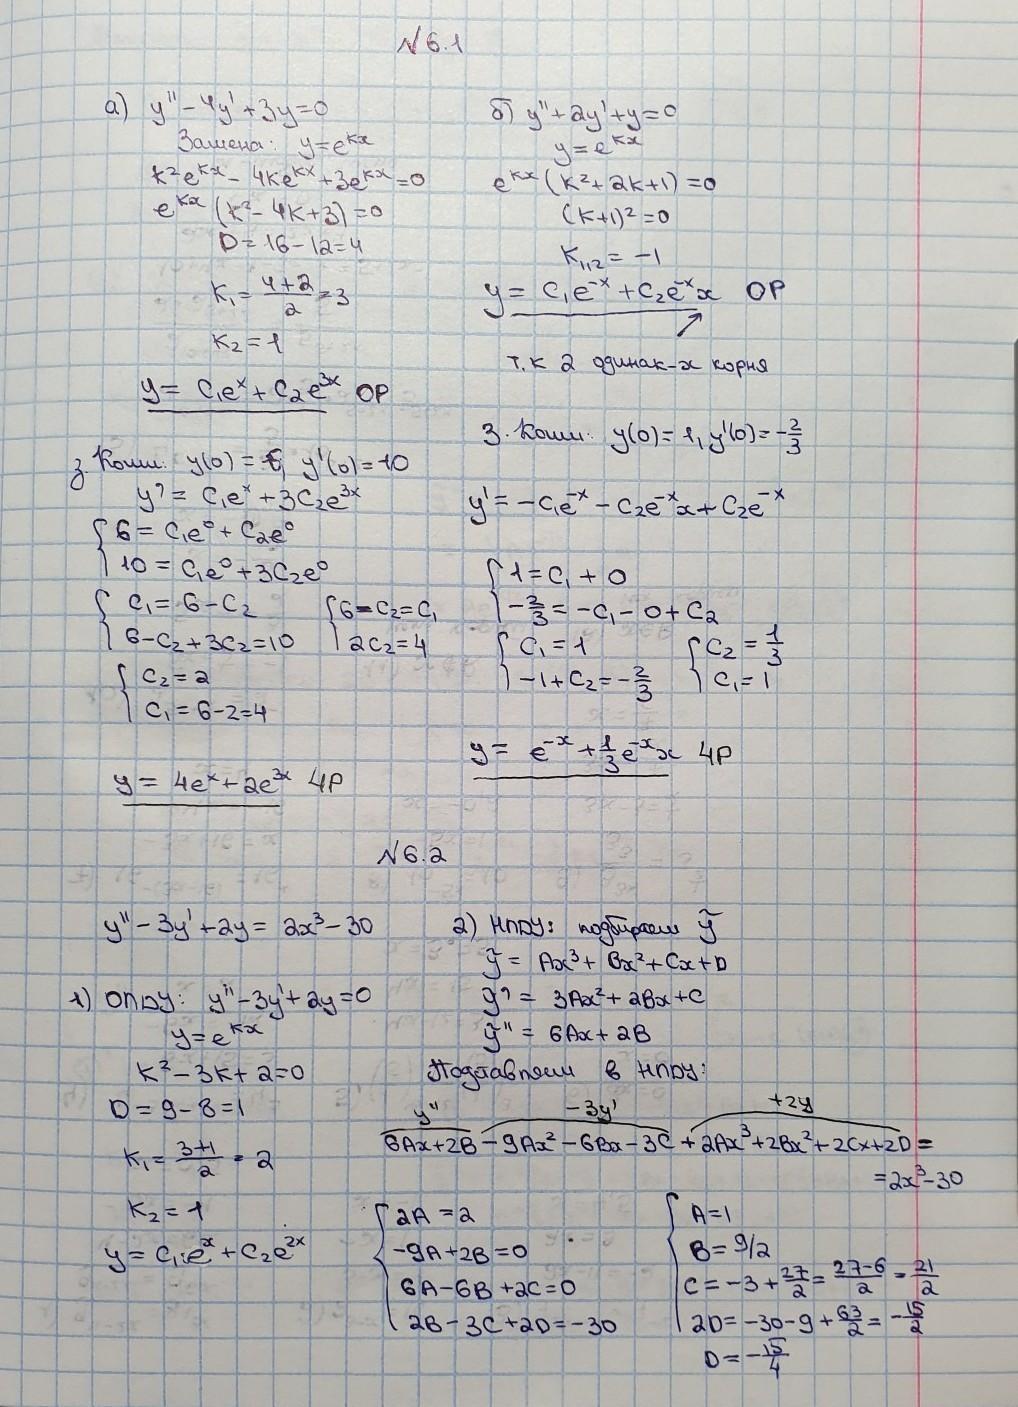 № 6.1
а) y'' - 4y' + 3y = 0
Замена: y = e^{kx}
k²e^{kx} - 4ke^{kx} + 3e^{kx} = 0
e^{kx} (k² - 4k + 3) = 0
D = 16 - 12 = 4
k₁ = \frac{4+2}{2} = 3
k₂ = 1
y = C₁e^x + C₂e^{3x} ОР
З. Коши: y(0) = 6, y'(0) = 10
y' = C₁e^x + 3C₂e^{3x}
{ 6 = C₁e⁰ + C₂e⁰
10 = C₁e⁰ + 3C₂e⁰
{ C₁ = 6 - C₂
6 - C₂ + 3C₂ = 10
{ 6 - C₂ = C₁
2C₂ = 4
{ C₂ = 2
C₁ = 6 - 2 = 4
y = 4e^x + 2e^{3x} ЧР
б) y'' + 2y' + y = 0
y = e^{kx}
e^{kx} (k² + 2k + 1) = 0
(k+1)² = 0
k_{1,2} = -1
y = C₁e^{-x} + C₂e^{-x}x ОР
т.к 2 одинак-х корня
З. Коши: y(0) = 1, y'(0) = -\frac{2}{3}
y' = -C₁e^{-x} - C₂e^{-x}x + C₂e^{-x}
{ 1 = C₁ + 0
-\frac{2}{3} = -C₁ - 0 + C₂
{ C₁ = 1
-1 + C₂ = -\frac{2}{3}
{ C₂ = \frac{1}{3}
C₁ = 1
y = e^{-x} + \frac{1}{3}e^{-x}x ЧР
№ 6.2
y'' - 3y' + 2y = 2x³ - 30
1) ОЛДУ: y'' - 3y' + 2y = 0
y = e^{kx}
k² - 3k + 2 = 0
D = 9 - 8 = 1
k₁ = \frac{3+1}{2} = 2
k₂ = 1
y = C₁e^x + C₂e^{2x}
2) НЛДУ: подбираем ỹ
ỹ = Ax³ + Bx² + Cx + D
ỹ' = 3Ax² + 2Bx + C
ỹ'' = 6Ax + 2B
Подставляем в НЛДУ:
y'' -3y' +2y
6Ax + 2B - 9Ax² - 6Bx - 3C + 2Ax³ + 2Bx² + 2Cx + 2D =
= 2x³ - 30
{ 2A = 2
-9A + 2B = 0
6A - 6B + 2C = 0
2B - 3C + 2D = -30
{ A = 1
B = 9/2
C = -3 + \frac{27}{2} = \frac{27-6}{2} = \frac{21}{2}
2D = -30 - 9 + \frac{63}{2} = -\frac{15}{2}
D = -\frac{15}{4}